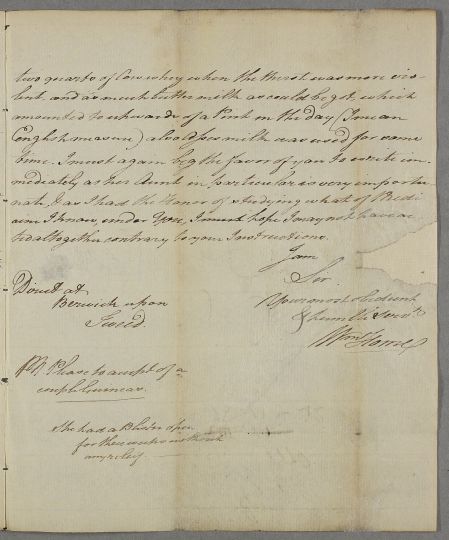 two quarts of Cow whey when the thirst was more vio-
lent, and as much butter milk as could be got which
amounted to upwards of a Pint in the day (I mean
English measure) also Asses milk was used for some
time. I must again beg the favor of you to write im-
mediately as her Aunt in particular is very importu-
nate, & as I had the Honor of studying what of Medi-
cine I know, under you, I must hope I may not have ac-
ted altogether contrary to your Instructions.
I am
Sir
Your most obedient
& humble Servt.
Wm
Direct at
Berwick upon
Tweed.
PS. Please to accept of a
couple Guineas.
She had a Blister open
for three weeks without
any relief.